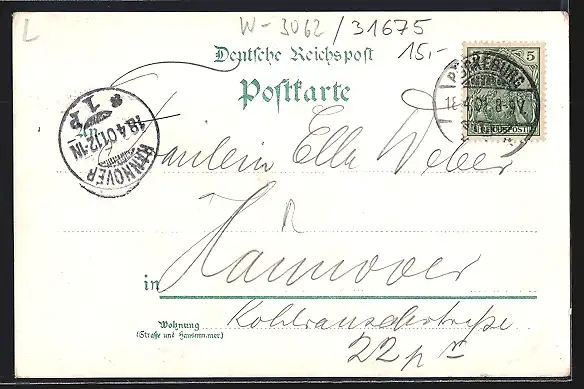 L
W-3062/31675
15,-
Deutsche Reichspost
Postkarte
5
REICHSPOST
18.4.01. 8-9V
HANNOVER
18.4.01.12-1N
* 1 P
An Fräulein Ella Weber
in Hannover
Kohlrauschstraße
Wohnung
(Straße und Hausnummer)
22 p